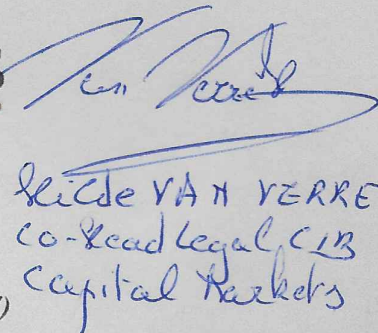 Van Verre
Hilde VAN VERRE
Co-Head Legal CIB
Capital Markets
)